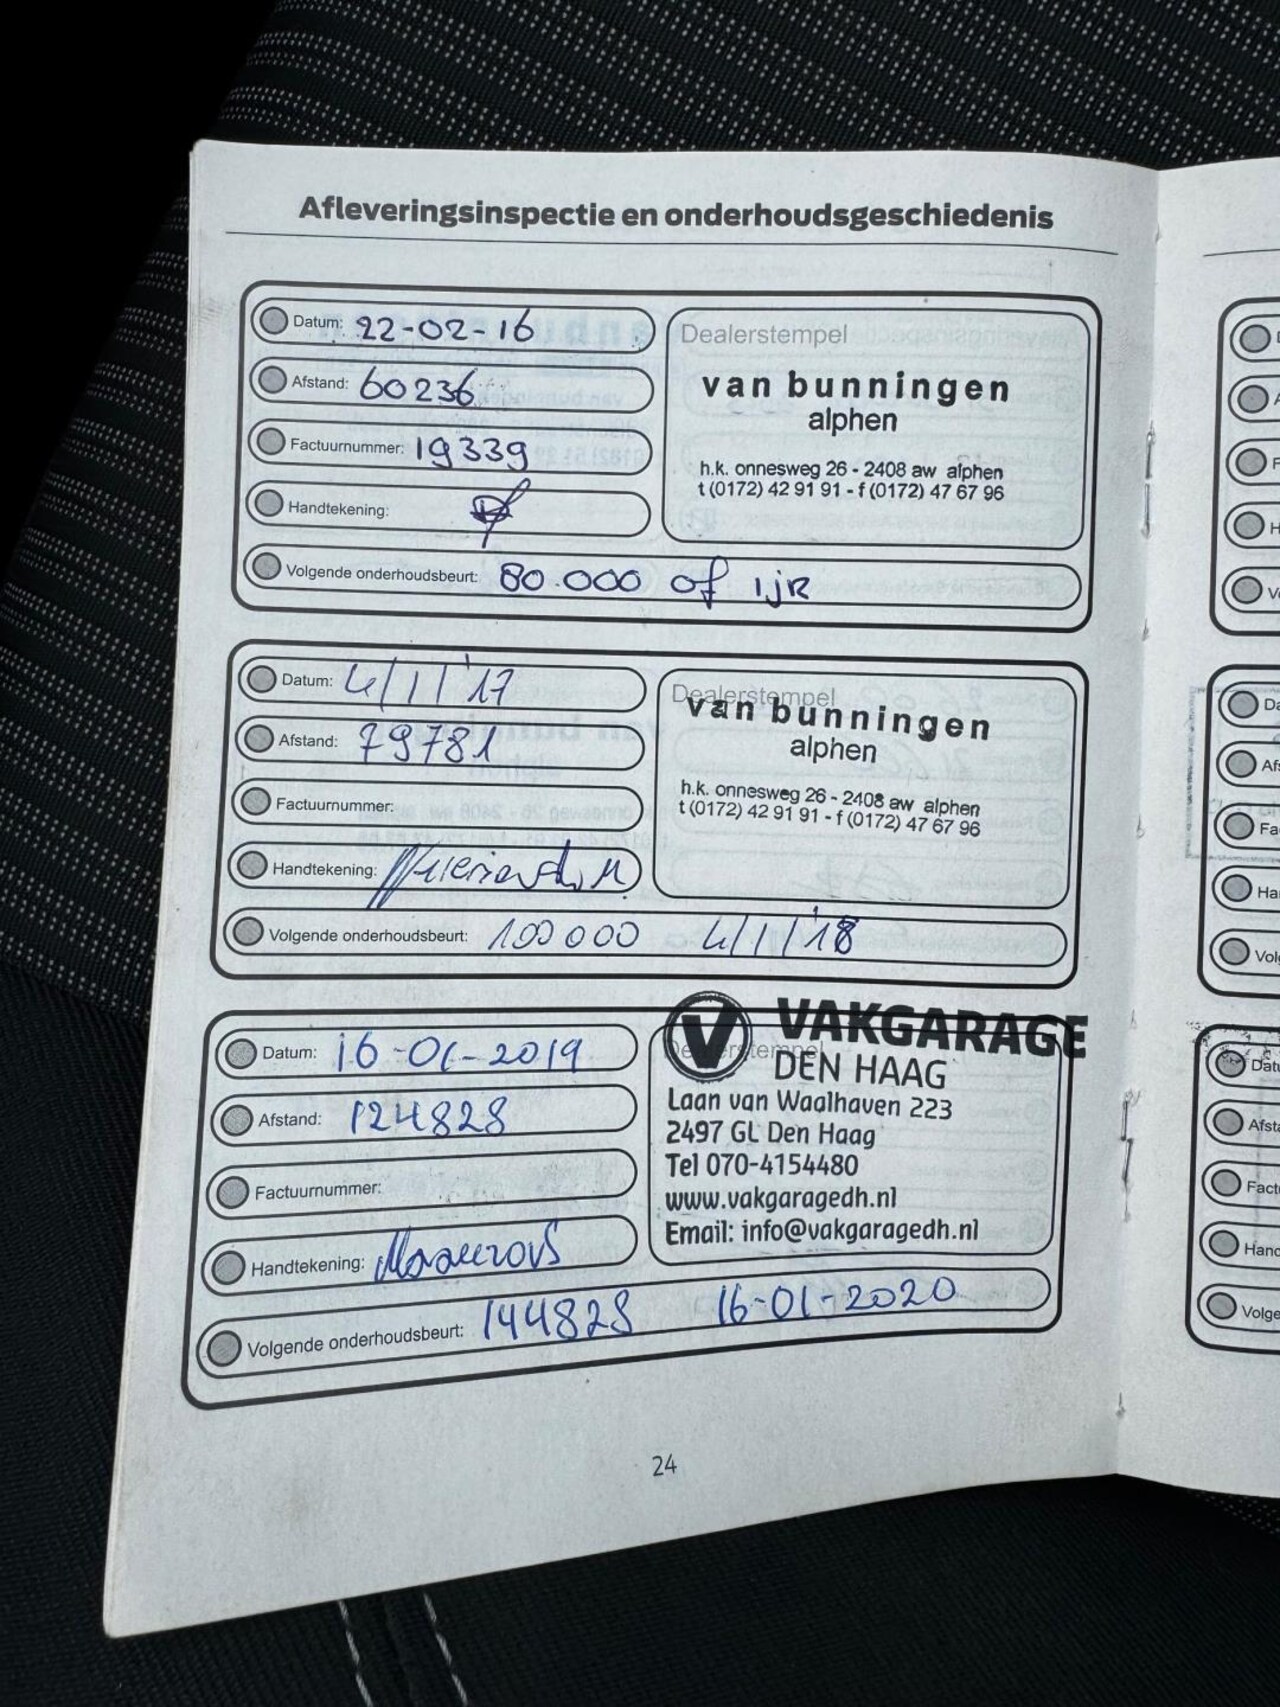 Afleveringsinspectie en onderhoudsgeschiedenis
Datum: 22-02-16
Afstand: 60236
Factuurnummer: 19339
Handtekening:
Dealerstempel
van bunningen
alphen
h.k. onnesweg 26 - 2408 aw alphen
t (0172) 42 91 91 - f (0172) 47 67 96
Volgende onderhoudsbeurt: 80.000 of 1jR
Datum: 4/1/'17
Afstand: 79781
Factuurnummer:
Handtekening:
Dealerstempel
van bunningen
alphen
h.k. onnesweg 26 - 2408 aw alphen
t (0172) 42 91 91 - f (0172) 47 67 96
Volgende onderhoudsbeurt: 100 000 4/1/'18
Datum: 16-01-2019
Afstand: 124828
Factuurnummer:
Handtekening:
Dealerstempel
V VAKGARAGE
DEN HAAG
Laan van Waalhaven 223
2497 GL Den Haag
Tel 070-4154480
www.vakgaragedh.nl
Email: info@vakgaragedh.nl
Volgende onderhoudsbeurt: 144828 16-01-2020
24